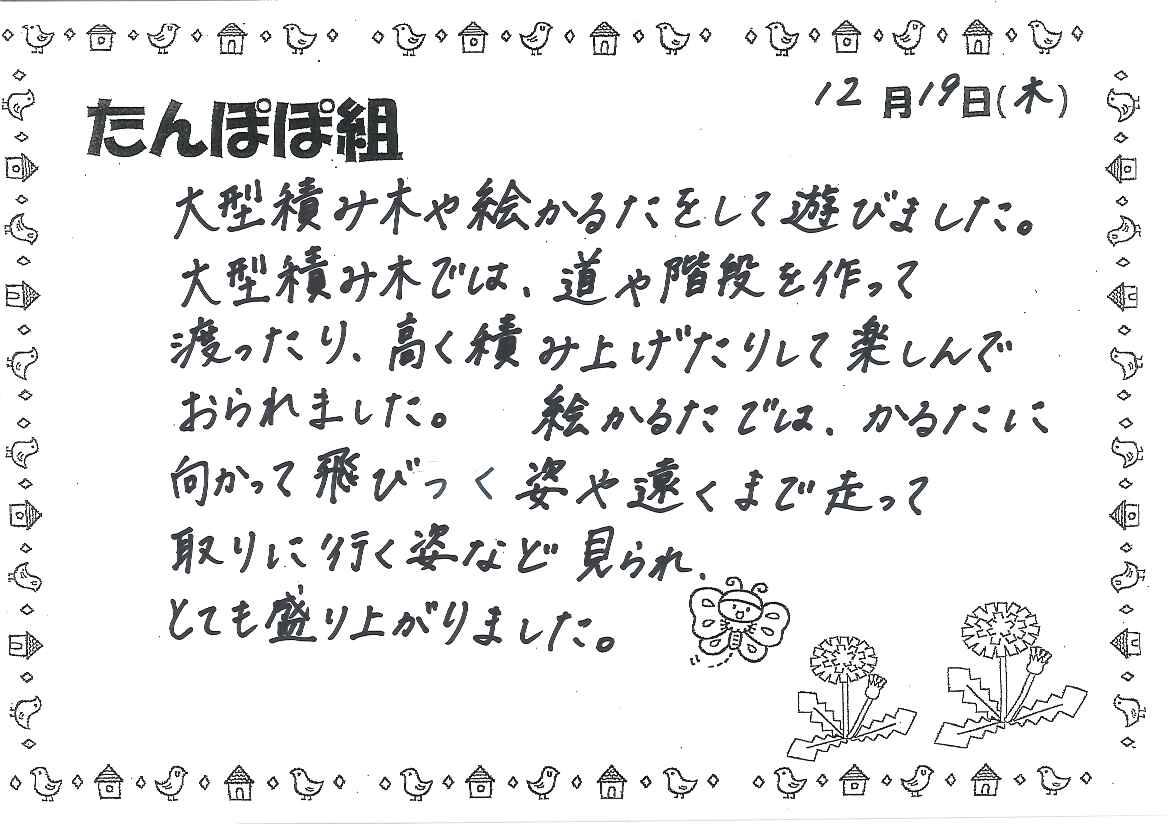 12月19日(木)
たんぽぽ組
大型積み木や絵かるたをして遊びました。
大型積み木では、道や階段を作って
渡ったり、高く積み上げたりして楽しんで
おられました。 絵かるたでは、かるたに
向かって飛びつく姿や遠くまで走って
取りに行く姿など見られ、
とても盛り上がりました。